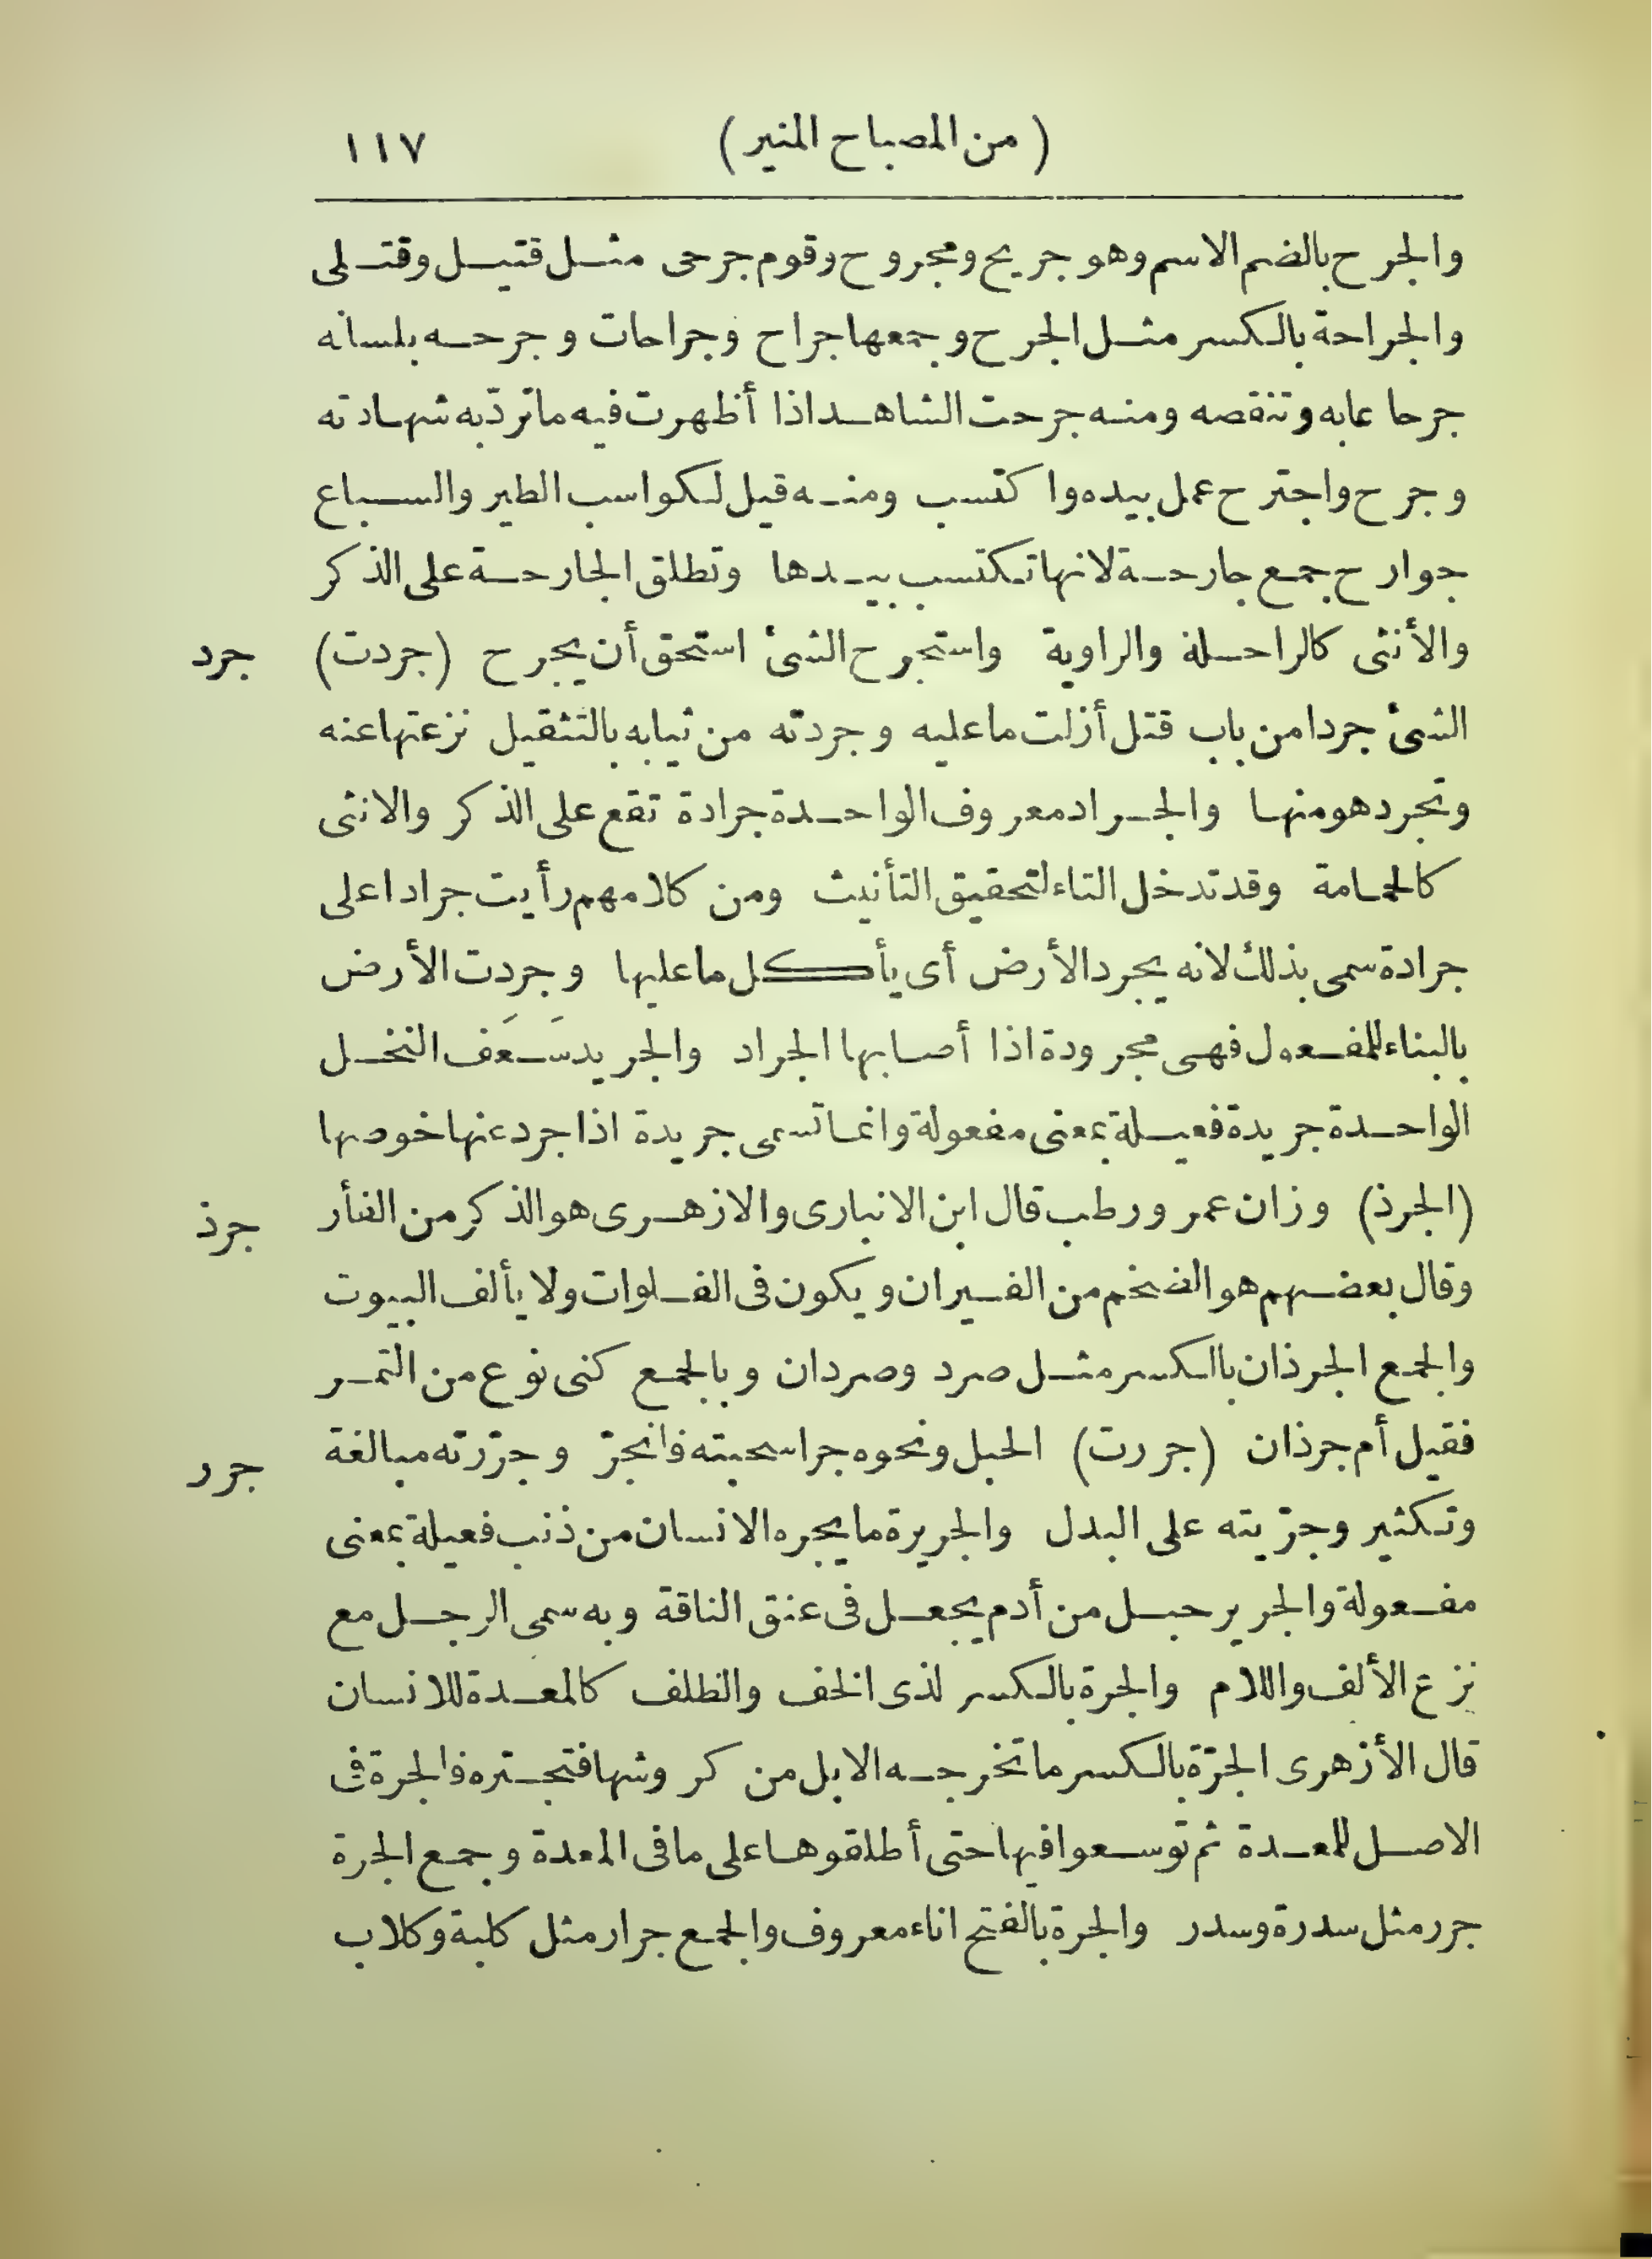 ( من المصباح المنير ) ١١٧
والجرح بالضم الاسم وهو جريح ومجروح وقوم جرحى مثل قتيل وقتلى
والجراحة بالكسر مثل الجرح وجمعها جراح وجراحات وجرحه بلسانه
جرحا عابه وتنقصه ومنه جرحت الشاهد اذا أظهرت فيه ما تردّ به شهادته
وجرح واجترح عمل بيده واكتسب ومنه قيل لكواسب الطير والسباع
جوارح جمع جارحة لانها تكتسب بيدها وتطلق الجارحة على الذكر
والأنثى كالراحلة والراوية واستجرح الشئ استحق أن يجرح (جردت) جرد
الشئ جردا من باب قتل أزلت ما عليه وجردته من ثيابه بالتثقيل نزعتها عنه
وتجرد هو منها والجراد معروف الواحدة جرادة تقع على الذكر والانثى
كالحمامة وقد تدخل التاء لتحقيق التأنيث ومن كلامهم رأيت جرادا على
جرادة سمى بذلك لانه يجرد الأرض أى يأكل ما عليها وجردت الأرض
بالبناء للمفعول فهى مجرودة اذا أصابها الجراد والجريد سَعَف النخل
الواحدة جريدة فعيلة بمعنى مفعولة وانما تسمى جريدة اذا جرد عنها خوصها
(الجرذ) وزان عمر ورطب قال ابن الانبارى والازهرى هو الذكر من الفأر جرذ
وقال بعضهم هو الضخم من الفيران ويكون فى الفلوات ولا يألف البيوت
والجمع الجرذان بالكسر مثل صرد وصردان وبالجمع كنى نوع من التمر
فقيل أم جرذان (جررت) الحبل ونحوه جرا سحبته فانجرّ وجرّرته مبالغة جرر
وتكثير وجرّيته على البدل والجريرة ما يجره الانسان من ذنب فعيلة بمعنى
مفعولة والجرير حبل من أدم يجعل فى عنق الناقة وبه سمى الرجل مع
نزع الألف واللام والجرة بالكسر لذى الخف والظلف كالمعدة للانسان
قال الأزهرى الجرّة بالكسر ما تخرجه الابل من كروشها فتجتره فالجرة فى
الاصل للمعدة ثم توسعوا فيها حتى أطلقوها على ما فى المعدة وجمع الجرة
جرر مثل سدرة وسدر والجرة بالفتح اناء معروف والجمع جرار مثل كلبة وكلاب